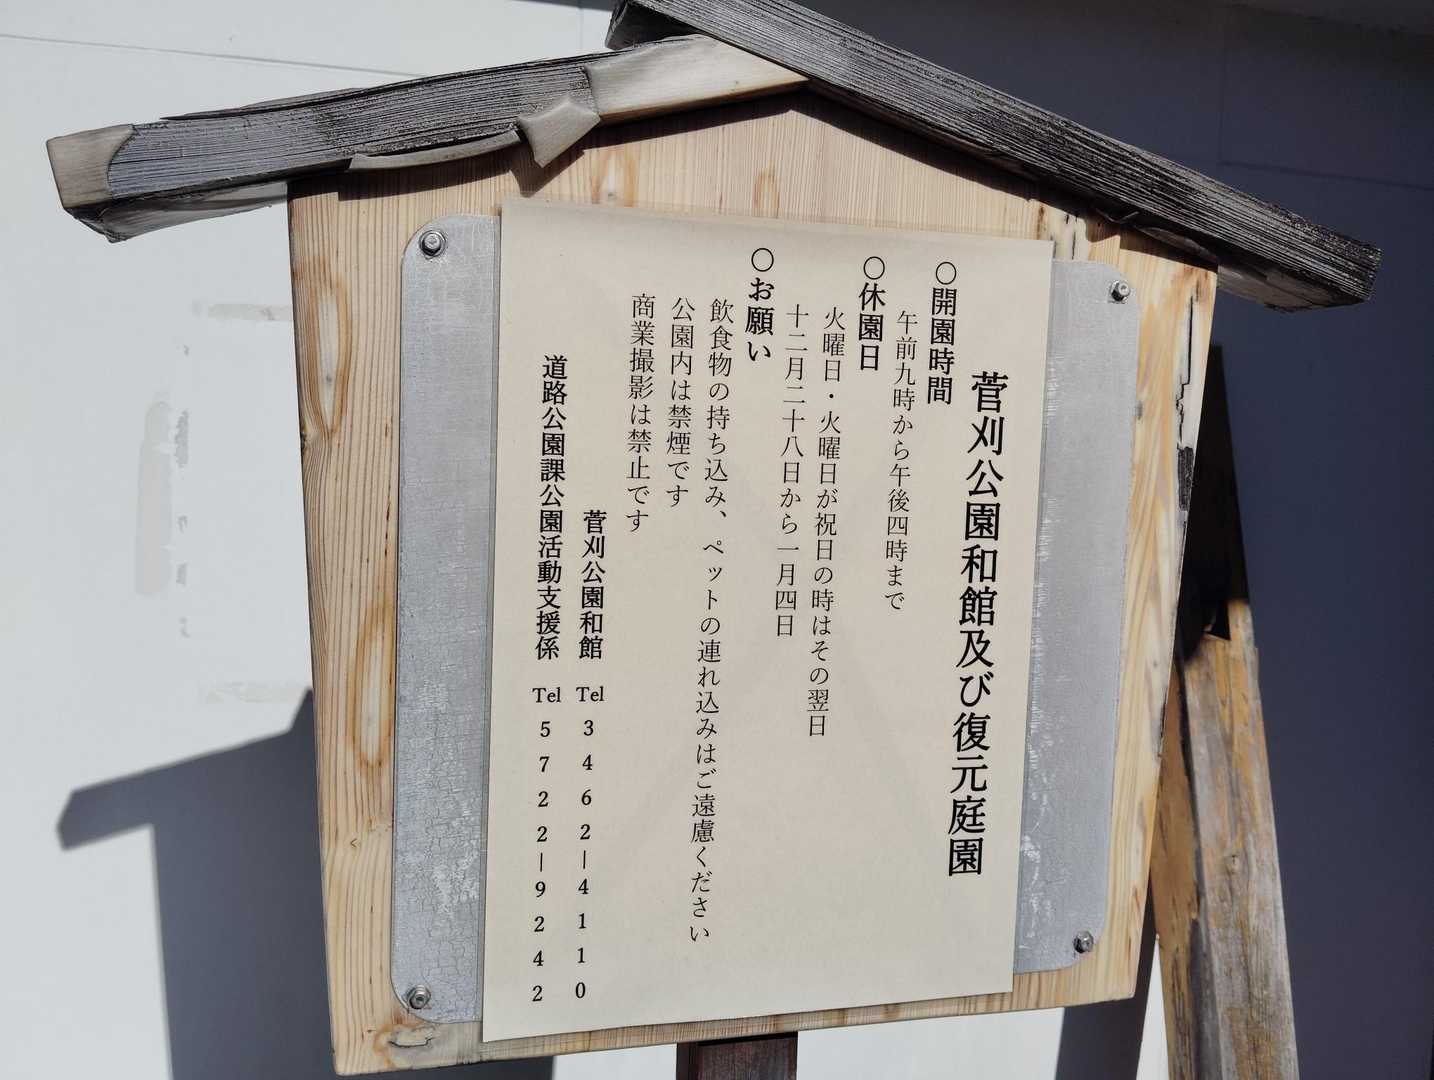 菅刈公園和館及び復元庭園
○開園時間
午前九時から午後四時まで
○休園日
火曜日・火曜日が祝日の時はその翌日
十二月二十八日から一月四日
○お願い
飲食物の持ち込み、ペットの連れ込みはご遠慮ください
公園内は禁煙です
商業撮影は禁止です
菅刈公園和館 Tel 3462―4110
道路公園課公園活動支援係 Tel 5722―9242